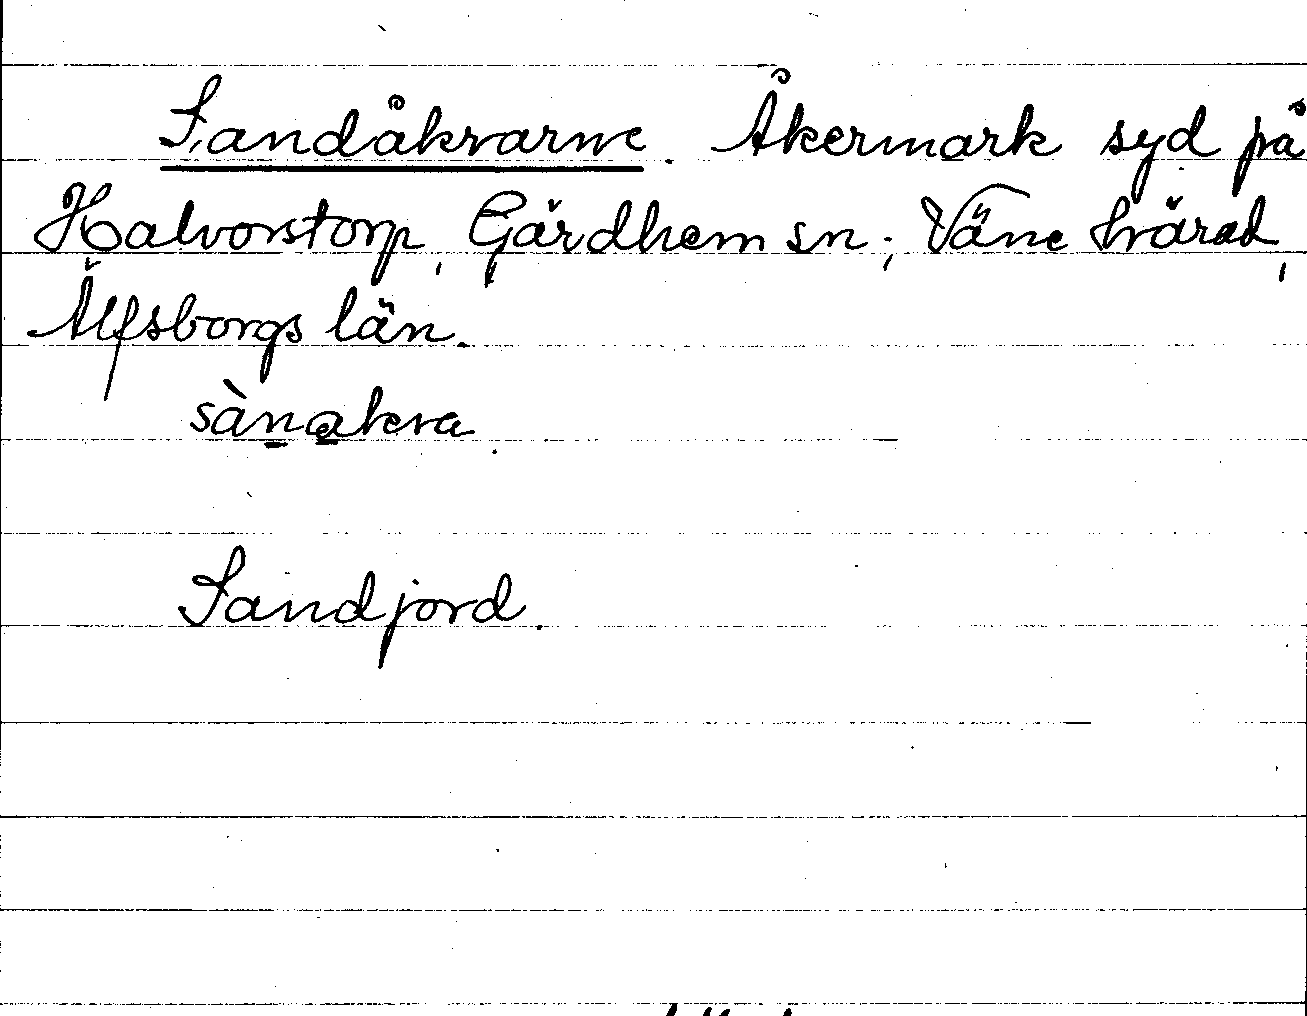 Sandåkrarne. Åkermark syd på
Halvorstorp, Gärdhem sn; Väne härad,
Älfsborgs län.
sànakra.
Sandjord.